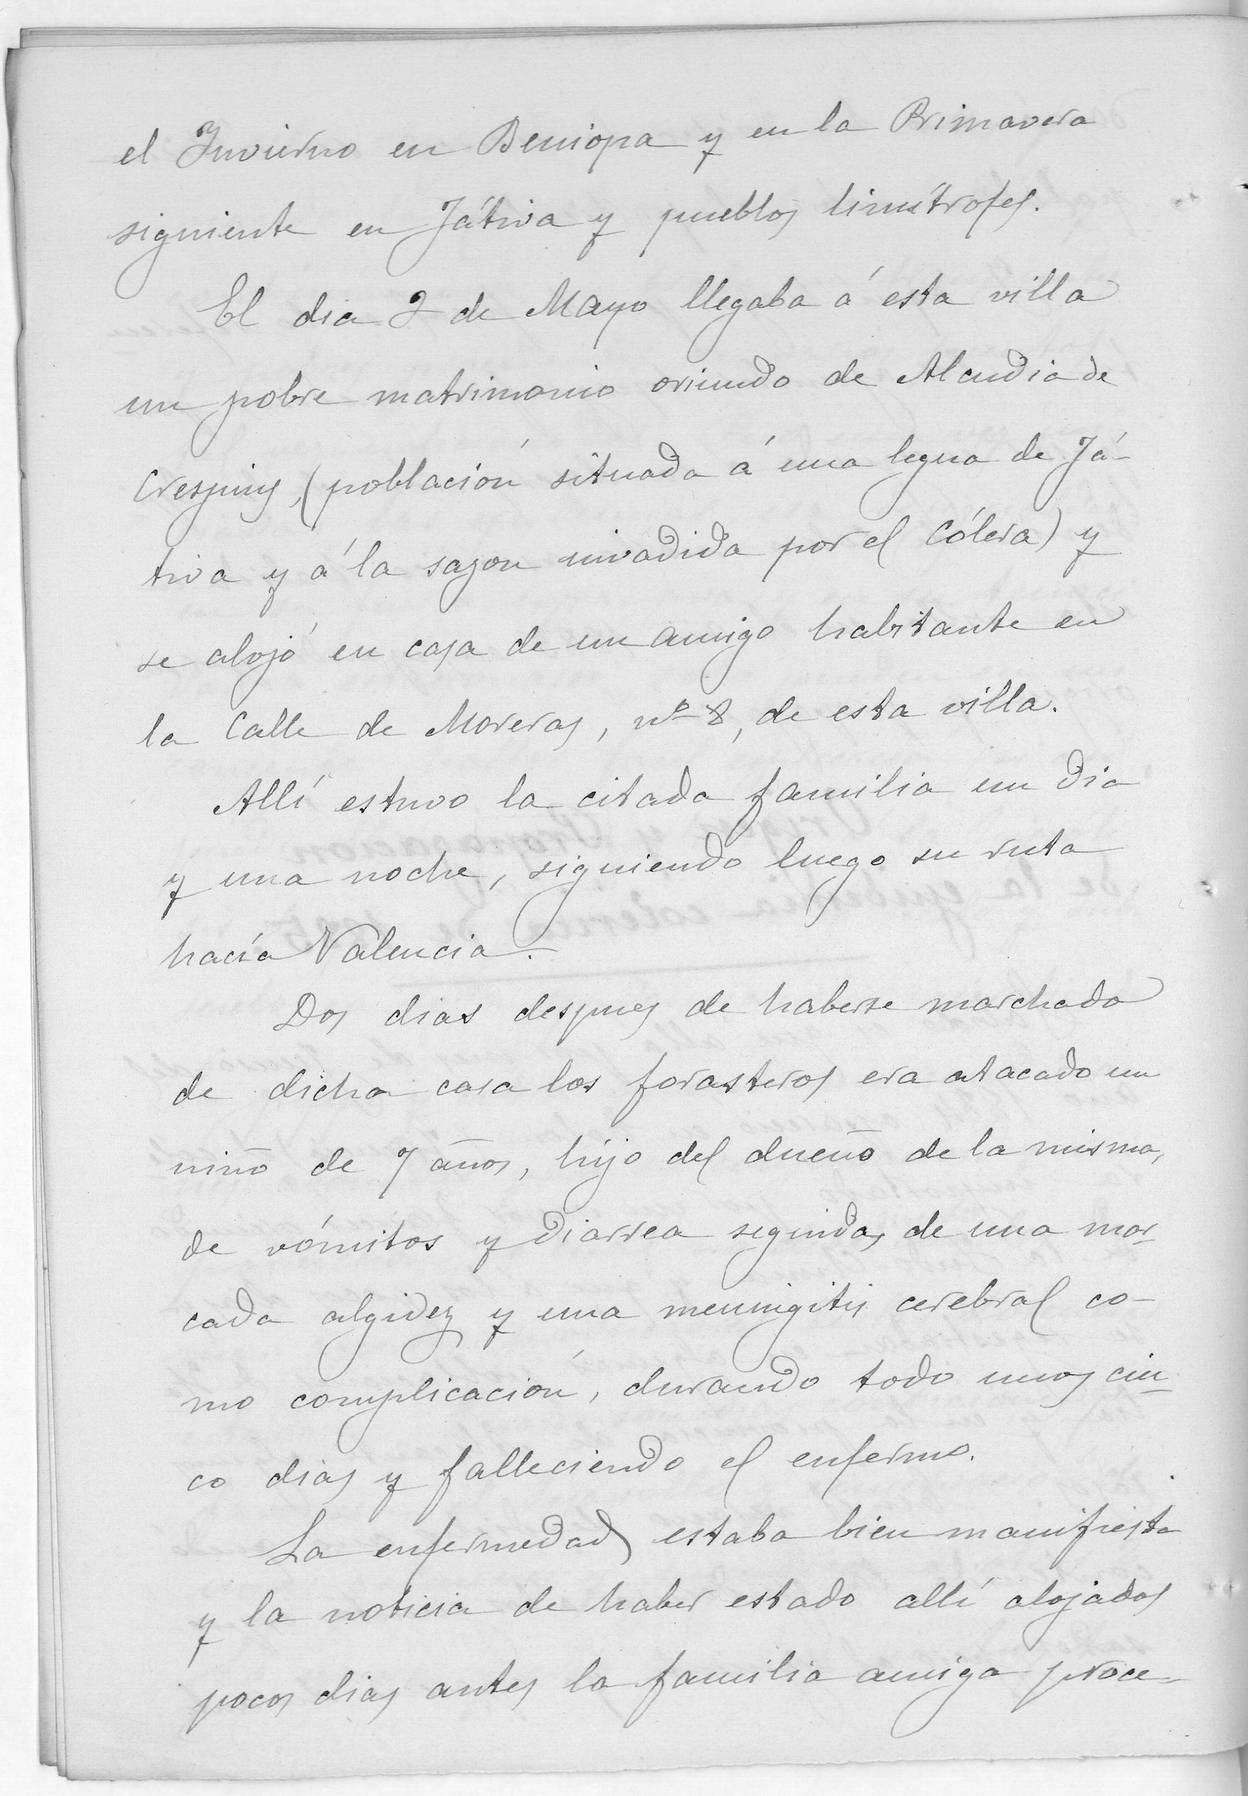 el Invierno en Beniopa y en la Primavera
siguiente en Játiva y pueblos limítrofes.
El dia 2 de Mayo llegaba á esta villa
un pobre matrimonio oriundo de Alcudia de
Crespins, (población situada á una legua de Já-
tiva y á la sazon invadida por el Cólera) y
se alojó en casa de un amigo habitante en
la Calle de Moreras, nº 8, de esta villa.
Allí estuvo la citada familia un dia
y una noche, siguiendo luego su ruta
hacía Valencia.
Dos dias despues de haberse marchado
de dicha casa los forasteros era atacado un
niño de 7 años, hijo del dueño de la misma,
de vómitos y diarrea seguidas de una mar-
cada algidez y una meningitis cerebral co-
mo complicación, durando todo unos cin-
co dias y falleciendo el enfermo.
La enfermedad estaba bien manifiesta
y la noticia de haber estado allí alojados
pocos dias antes la familia amiga proce-